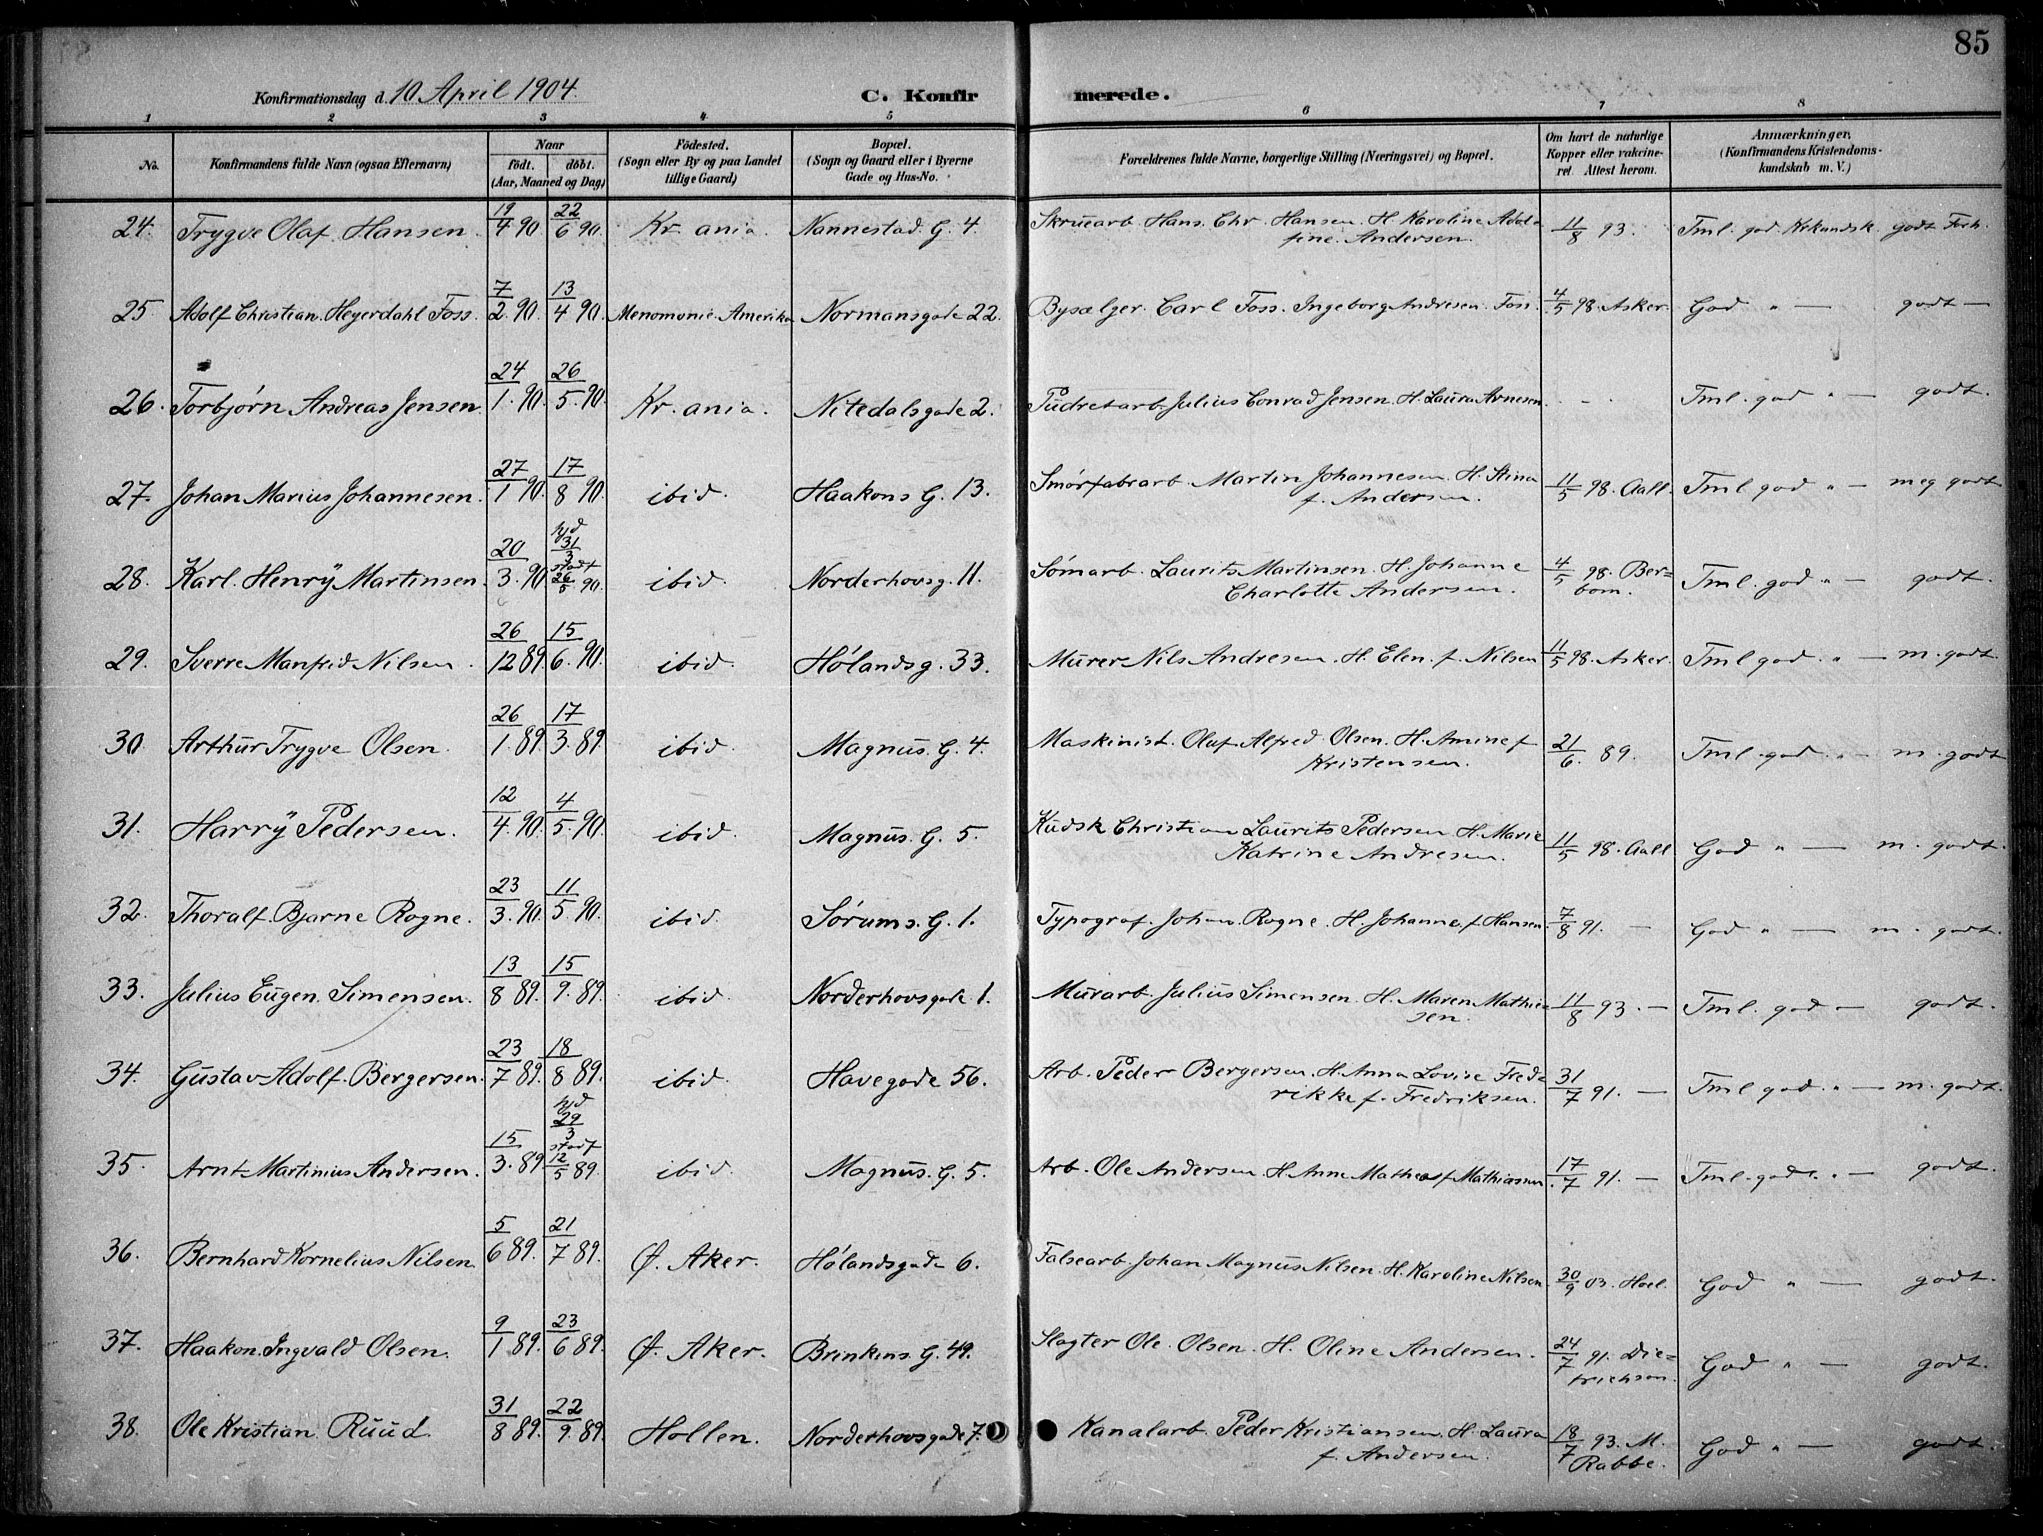 85
Konfirmationsdag d. 10 April 1904. C. Konfirmerede.
1 2 3 4 5 6 7 8
No. Konfirmandens fulde Navn (ogsaa Efternavn) Naar født. døbt. (Aar, Maaned og Dag) Fødested. (Sogn eller By og paa Landet tillige Gaard) Bopæl. (Sogn og Gaard eller i Byerne Gade og Hus-No. Forældrenes fulde Navne, borgerlige Stilling (Næringsvei) og Bopæl. Om havt de naturlige Kopper eller vakcineret Attest herom. Anmærkninger. (Konfirmandens Kristendomskundskab m. V.)
24. Trygve Olaf Hansen. 19/4 90 22/6 90. Kr.ania. Nannestad. G. 4 Skruearb Hans. Chr. Hansen. H. Karoline Adolfine. Andersen. 11/8 93. Tml. god. Krkundsk. godt Forh.
25 Adolf Christian. Heyerdahl Foss. 7/2 90. 13/4 90. Menomonie. Amerika Normansgade 22. Bysælger. Carl Foss. Ingeborg Andresen Foss. 4/5 98. Asker. God " — godt —
26. Torbjørn Andreas Jensen 24/1. 90. 26/5. 90. Kr.ania. Nitedalsgade 2. Pudretarb. Julius Conrad Jensen. H. Laura Arnesen . - . Tml. god " — godt.
27. Johan Marius Johannesen. 27/1 90. 17/8 90. ibid. Haakons G. 13. Smørfabrarb. Martin Johannesen. H. Stina f. Andersen. 11/5 98. Aall. Tml. god " — meg godt
28. Karl. Henrÿ Martinsen. 20/3. 90 hjd 31/3 stadf 26/5 90. ibid. Norderhovsg. 11. Sømarb. Laurits Martinsen. H. Johanne Charlotte Andersen. 4/5 98. Berbom. Tml. god " — godt.
29. Sverre Manfrid Nilsen. 26/12 89. 15/6. 90. ibid. Hølandsg. 33. Murer Nils Andresen. H. Elen. f. Nilsen 11/5 98. Asker. Tml god. " — m. godt.
30. Arthur Trygve Olsen. 26/1. 89. 17/3. 89. ibid. Magnus. G. 4. Maskinist. Oluf Alfred. Olsen. H. Amine f Kristensen. 21/6. 89. Tml. god. " — m. godt
31. Harrÿ Pedersen. 12/4. 90. 4/5. 90. ibid. Magnus. G. 5. Kudsk Christian Laurits Pedersen H. Marie Katrine Andresen. 11/5 98. Aall God " — m. godt.
32. Thoralf. Bjarne Rogne. 23/3. 90. 11/5 90. ibid. Sørums. G. 1. Typograf. Johan. Rogne. H. Johanne f Hansen. 7/8 91. — God " — m. godt.
33. Julius Eugen. Simensen. 13/8 89. 15/9. 89. ibid. Norderhovsgade. 1. Murarb. Julius Simensen. H. Maren Mathiesen. 11/8 93. — Tml. god — godt.
34. Gustav Adolf. Bergersen. 23/7 89. 18/8 89. ibid. Havegade 56. Arb. Peder Bergersen. H. Anna Lovise Frederikke f. Fredriksen. 31/7 91. — Tml god. " — m. godt.
35. Arnt Martinius Andersen. 15/3. 89 hjd 29/3 stadf 12/5 89. ibid. Magnus. G. 5. Arb. Ole Andersen. H. Anne Mathea f Mathiassen 17/7 91. — Tml. god. " — godt.
36. Bernhard Kornelius Nilsen. 5/6 89. 21/7 89. Ø. Aker. Hølandsgade 6. Falsearb. Johan Magnus Nilsen. H. Karoline Nilsen 30/9 03. Hoel. God " — godt.
37. Haakon. Ingvald Olsen. 9/1 89. 23/6 89. Ø. Aker. Brinkens. G. 49. Slagter Ole. Olsen. H. Oline Andersen. 24/7 91. Dietrichson. God " — godt.
38. Ole Kristian. Ruud. 31/8 89. 22/9. 89. Hollen. Norderhovsgade 7. Kanalarb. Peder Kristiansen. H. Laura f. Andersen. 18/7 93. M. Rabbe. God " — godt.